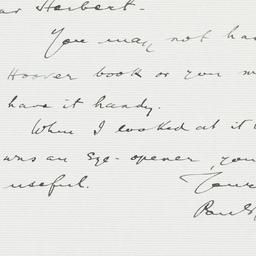 ar Herbert-
You may not hav
Hoover book or you m
have it handy.
When I looked at it
was an eye-opener, you
useful.
Your
Paul